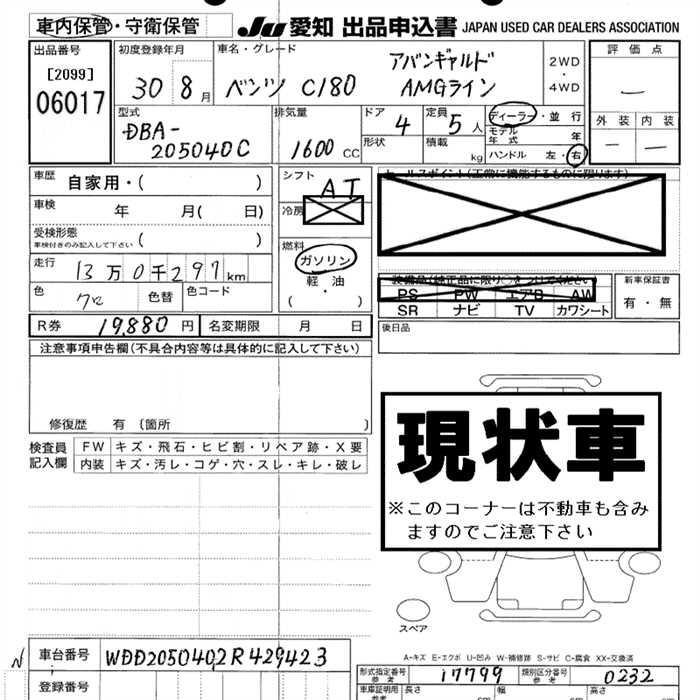 車内保管・守衛保管 JU 愛知 出品申込書 JAPAN USED CAR DEALERS ASSOCIATION
出品番号 初度登録年月 車名・グレード 評価点
[2099] アバンギャルド 2WD
06017 30 8月 ベンツ C180 AMGライン ・4WD
― 外装 内装
型式 排気量 ドア 4 定員 5人 ディーラー・並行
DBA- モデル年式 年
205040C 1600CC 形状 積載 kg ハンドル 左・右 ― ―
車歴 自家用・( ) シフト AT セールスポイント(正常に機能するものに限ります)
車検 年 月( 日) 冷房
受検形態
車検付きのみ記入して下さい ( ) 燃料
走行 13万0千297km ガソリン
軽・油
(・)
装備品(純正品に限り○をつけてください) 新車保証書
色 クロ 色替 色コード PS PW エアB AW 有・無
SR ナビ TV カワシート
R券 19,880円 名変期限 月 日 後日品
注意事項申告欄(不具合内容等は具体的に記入して下さい)
修復歴 有 (箇所 )
現状車
※このコーナーは不動車も含み
ますのでご注意下さい
検査員記入欄 FW キズ・飛石・ヒビ割・リペア跡・X要
内装 キズ・汚レ・コゲ・穴・スレ・キレ・破レ
スペア
A-キズ E-エクボ U-凹み W-補修跡 S-サビ C-腐食 XX-交換済
N 車台番号 WDD2050402R429423
型式指定番号 参考 17799 類別区分番号 参考 0232
登録番号 車庫証明用 参考 長さ cm 幅 cm 高さ cm